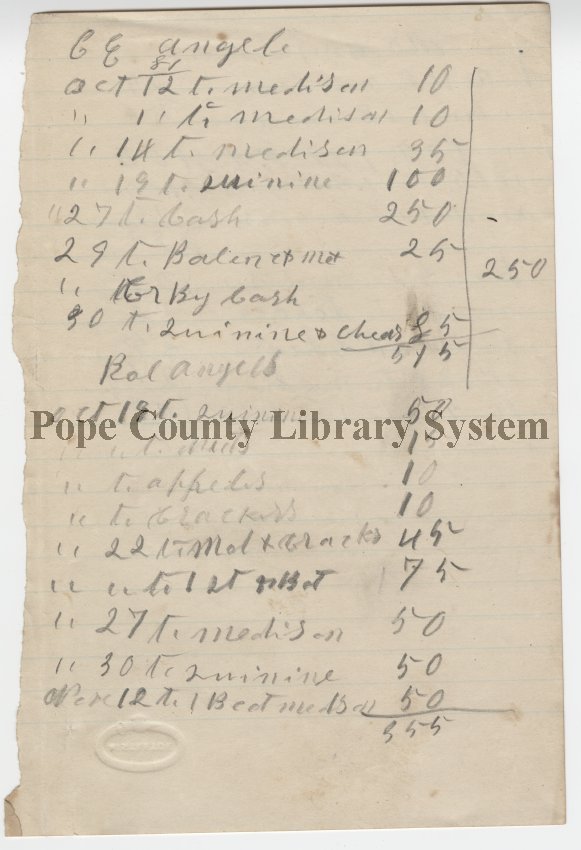 C E Angel
81
Oct 12 to medison 10
" " to medison 10
" 14 to medison 35
" 19 to quinine 100
" 27 to Cash 250
29 to 25
" By Cash 250
30 to quinine & 25
515
Angels
Oct 18 to quinine 50
" " to 15
" to appels 10
" to Crackers 10
" 22 to Mol & Cracks 45
" " to 1 75
" 27 to medison 50
" 30 to quinine 50
Nove 12 to 1 Beot medson 50
355
Pope County Library System